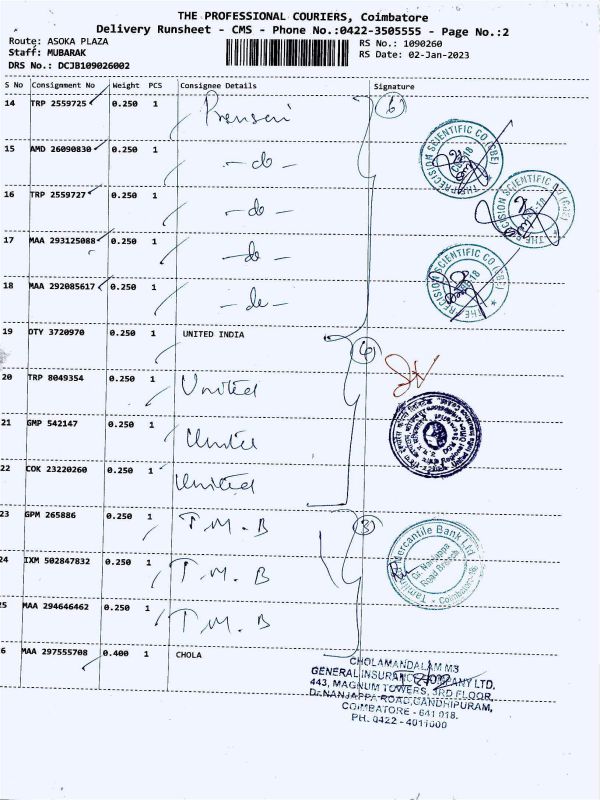 THE PROFESSIONAL COURIERS, Coimbatore
Delivery Runsheet - CMS - Phone No.:0422-3505555 - Page No.:2
Route: ASOKA PLAZA
RS No.: 1090260
Staff: MUBARAK
RS Date: 02-Jan-2023
DRS No.: DCJB109026002
S No Consignment No Weight PCS Consignee Details Signature
14 TRP 2559725 0.250 1
15 AMD 26090830 0.250 1 - do -
16 TRP 2559727 0.250 1 - do -
17 MAA 293125088 0.250 1 - do -
18 MAA 292085617 0.250 1 - do -
THE PRECISION SCIENTIFIC CO (CBE)
THE PRECISION SCIENTIFIC CO (CBE)
THE PRECISION SCIENTIFIC CO (CBE)
19 DTY 3720970 0.250 1 UNITED INDIA
4
20 TRP 8049354 0.250 1 United
21 GMP 542147 0.250 1 United
22 COK 23220260 0.250 1 United
23 GPM 265886 0.250 1 T.M.B
3
24 IXM 502847832 0.250 1 T.M.B
25 MAA 294646462 0.250 1 T.M.B
Tamilnad Mercantile Bank Ltd
Dr. Nanjappa
Road Branch
6 MAA 297555708 0.400 1 CHOLA
CHOLAMANDALAM MS
GENERAL INSURANCE COMPANY LTD.
443, MAGNUM TOWERS, 3RD FLOOR,
Dr.NANJAPPA ROAD, GANDHIPURAM,
COIMBATORE - 641 018.
PH. 0422 - 4011000